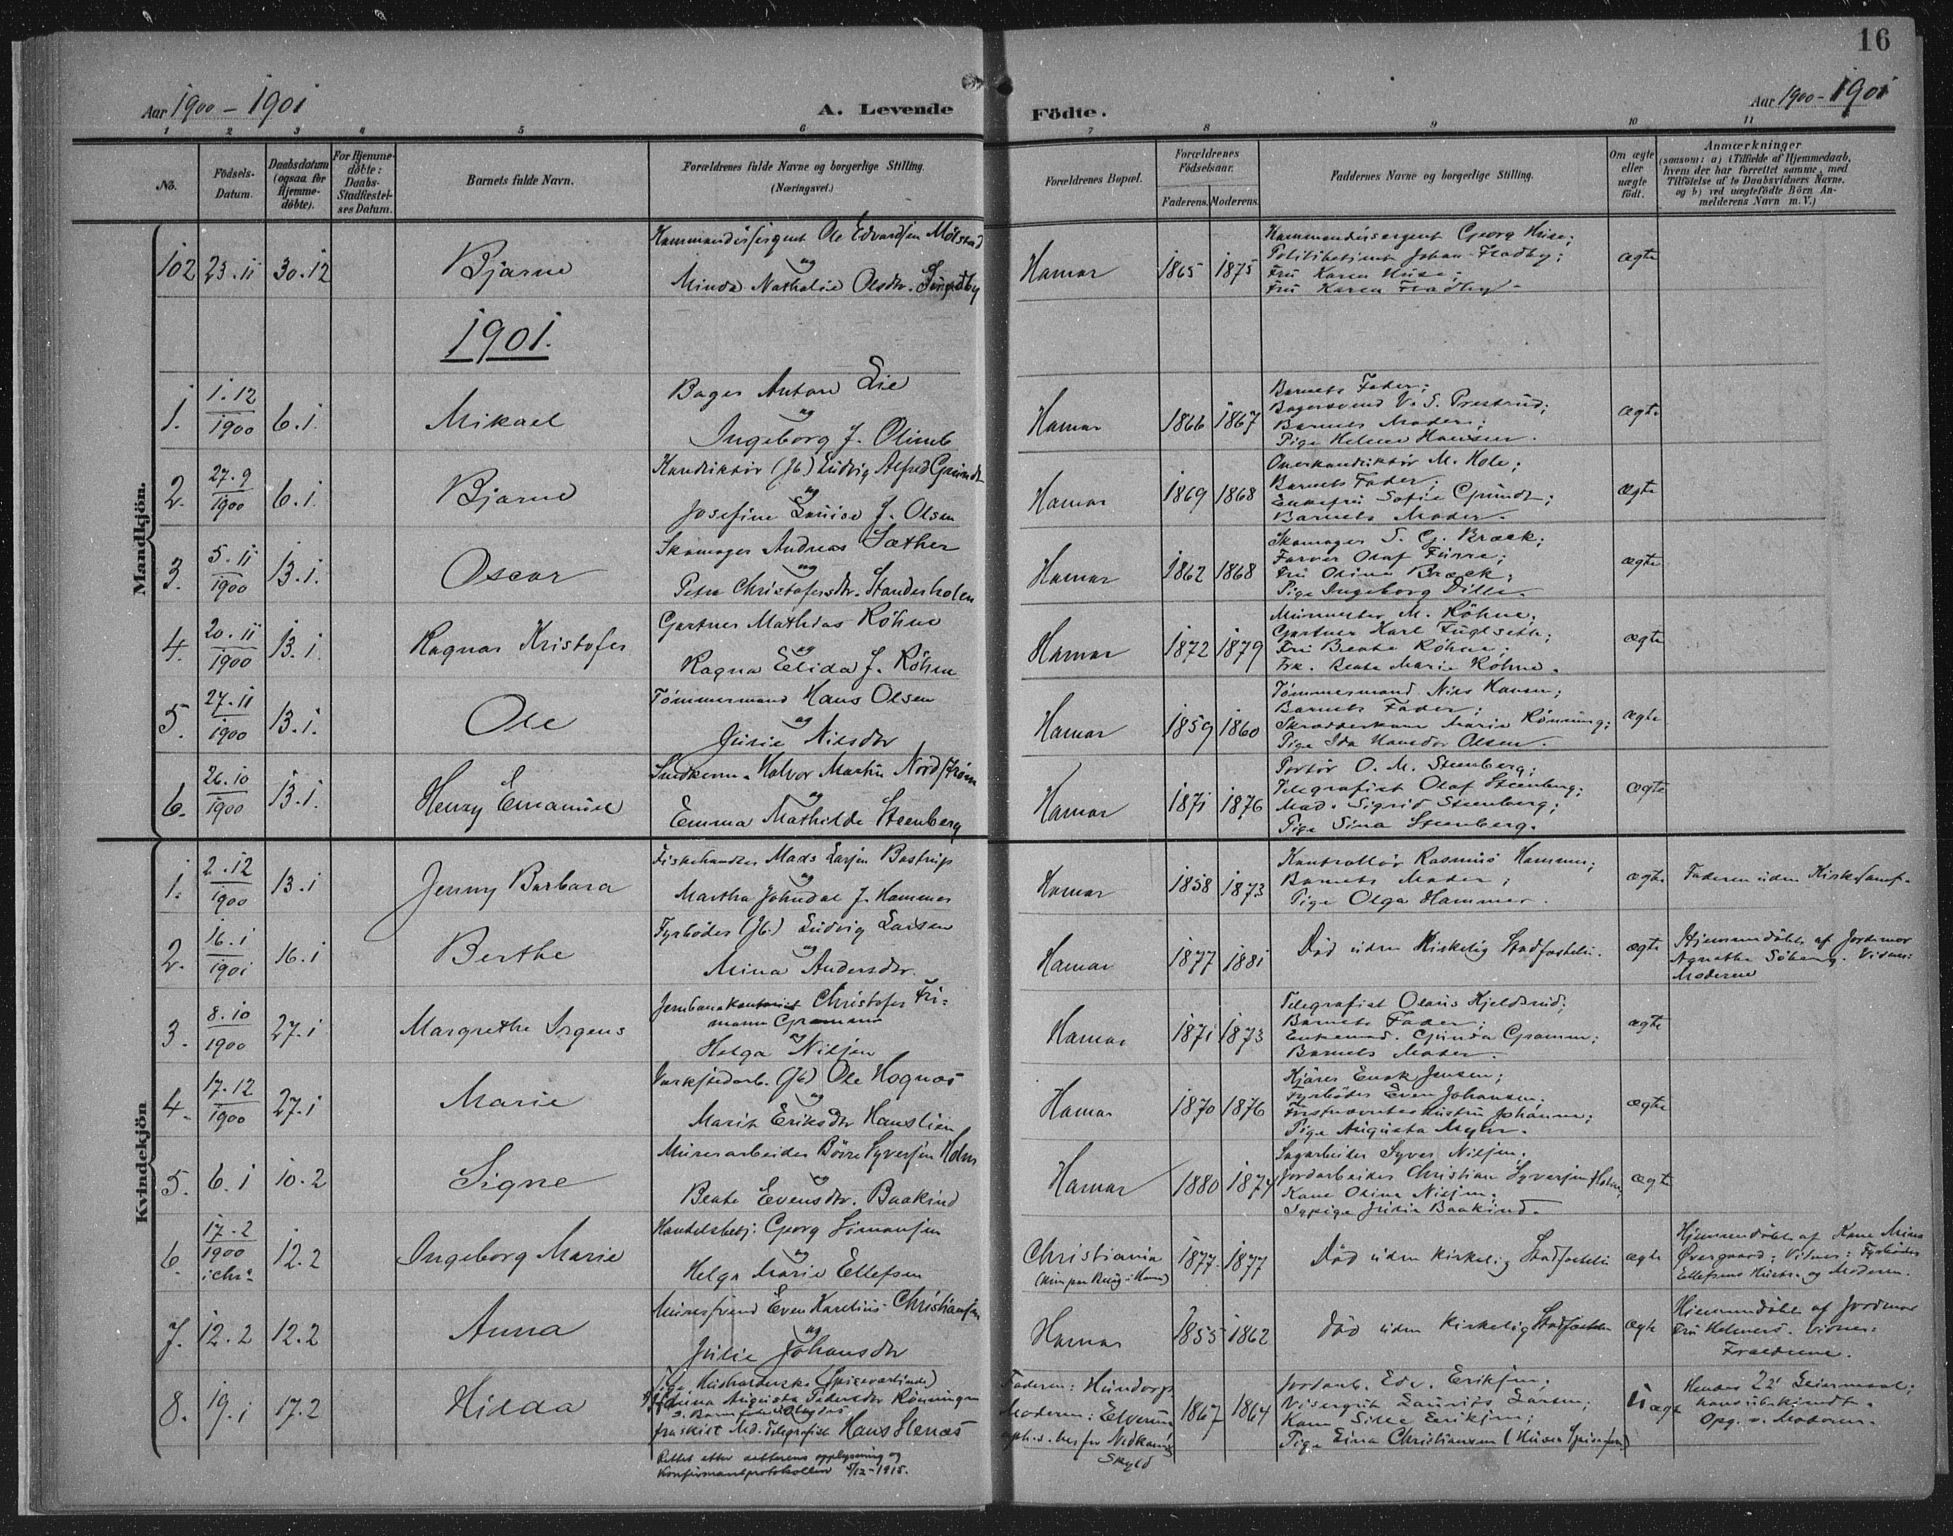 16
Aar 1900 - 1901
A. Levende Födte.
Aar 1900 - 1901
1 2 3 4 5 6 7 8 9 10 11
No.
Födsels-Datum.
Daabsdatum (ogsaa for Hjemme-döbte).
For Hjemme-döbte: Daabs-Stadfæstel-ses Datum.
Barnets fulde Navn.
Forældrenes fulde Navne og borgerlige Stilling.
(Næringsvei.)
Forældrenes Bopæl.
Forældrenes Födselsaar.
Faderens. Moderens.
Faddernes Navne og borgerlige Stilling.
Om ægte eller uægte födt.
Anmærkninger
(saasom: a) i Tilfælde af Hjemmedaab,
hvem der har forrettet samme, med
Tilföielse af to Daabsvidners Navne,
og b) ved uægtefödte Börn An-
melderens Navn m. V.)
Mandkjön.
102 23.11 30.12 Bjarne
Ole Edvardsen Mølstad
og
Minda Nathalie Olsdtr.
Hamar 1865 1875
Georg Huse;
Johan Fladby;
Fru Karen Huse;
Fru Karen Fladby
ægte
1901.
1. 1.12 1900 6.1. Mikael
Bager Anton Lie
og
Ingeborg J. Olimb
Hamar 1866 1867
Barnets Fader;
Bagersvend V. S. Prestrud;
Barnets Moder;
Pige Helene Hansen.
ægte
2. 27.9 1900 6.1 Bjarne
Konduktør (Jb) Ludvig Alfred Gründt
og
Josefine Louise J. Olsen
Hamar 1869 1868
Overkonduktør M. Hole;
Barnets Fader;
Enkefru Sofie Gründt;
Barnets Moder.
ægte
3. 5.11 1900 13.1. Oscar
Skomager Andreas Sæther
og
Petra Christofersdtr. Standerholen
Hamar 1862 1868
Skomager S. G. Bræck;
Farver Olaf Furre;
Fru Olina Bræck;
Pige Ingeborg Dille.
ægte
4. 20.11 1900 13.1. Ragnar Kristofer
Gartner Mathias Röhne
og
Ragna Elida J. Röhne
Hamar 1872 1879
Murmester M. Röhne;
Gartner Karl Fuglseth;
Fru Beate Röhne;
Frk. Beate Marie Röhne.
ægte
5. 27.11 1900 13.1. Ole
Tømmermand Hans Olsen
og
Julie Nilsdtr
Hamar 1859 1860
Tømmermand Nils Hansen;
Barnets Fader;
Skrædderkone Marie Rönning;
Pige Ida Hansdtr Olsen.
ægte
6. 26.10 1900 13.1. Henry Emanuel
Halvor Martin Nordstrøm
og
Emma Mathilde Steenberg
Hamar 1871 1876
Portør O. M. Steenberg;
Telegrafist Olaf Steenberg;
Mad. Sigrid Steenberg;
Pige Sina Steenberg.
ægte
Kvindekjön
1. 2.12 1900 13.1 Jenny Barbara
Fiskehandler Mads Larsen Bastrup
og
Martha Johndal J. Hammer
Hamar 1858 1873
Kontrollør Rasmus Hammer;
Barnets Moder;
Pige Olga Hammer.
ægte
Faderen uden Kirkesamf.
2. 16.1 1901 16.1 Berthe
Fyrbøder (Jb.) Ludvig Larsen
og
Mina Andersdtr.
Hamar 1877 1881
Död uden Kirkelig Stadfæstelse.
ægte
Hjemmedöbt af Jordemor
Agnethe Söberg. Vidner:
Moderen
3. 8.10 1900 27.1 Margrethe Irgens
Jernbanekontorist Christofer Fri-
mann Gramm
og
Helga Nilsen
Hamar 1871 1873
Telegrafist Olaus Kjeldsrud;
Barnets Fader;
Enkemad. Gunda Gramm;
Barnets Moder.
ægte
4. 17.12 1900 27.1 Marie
Værkstedarb. (Jb) Ole Hognæs
og
Marit Eriksdtr Hanslien
Hamar 1870 1876
Kjører Enok Jensen;
Fyrbøder Even Johansen;
Hustru Johanne;
Pige Augusta Myhr.
ægte
5. 6.1 10.2 Signe
Murerarbeider Börre Syversen Holm
og
Beate Evensdtr. Baakind
Hamar 1880 1874
Sagarbeider Syver Nilsen;
Jordarbeider Christian Syversen Holm;
Kone Olina Nilsen;
Sypige Julie Baakind.
ægte
6. 17.2 1900 i Chr.a 12.2 Ingeborg Marie
Handelsbetj. Georg Simonsen
og
Helga Marie Ellefsen
Christiania
1877 1877
Död uden kirkelig Stadfæstelse
ægte
Hjemmedöbt af Kone Mina
Övergaard; Vidner: Fyrböder
Ellefsens Hustru og Moderen.
7. 12.2 12.2 Anna
Murersvend Even Karelius Christiansen
og
Julie Johansdtr
Hamar 1855 1862
Död uden kirkelig Stadfæstelse
ægte
Hjemmedöbt af Jordmor
Fru Helmers. Vidner:
Forældrene.
8. 19.1 17.2 Hilda
(Spiseværtinde)
Augusta Pedersdtr Rönningen
fraskilt Md. Telegrafist Hans Stenås
Rettet efter rettens oplysning og
Konfirmantprotokollen 5/12-1915.
Faderen: Hundorp
Moderen: Elverum
Skyld
1867 1864
Jordarb. Edv. Eriksen;
Visergut Laurits Larsen;
Kone Sille Eriksen;
Pige Lina Christiansen
Uægte
Hendes 2d. Leiermaal;
hans ubekjendt.
Opg. v. Moderen.